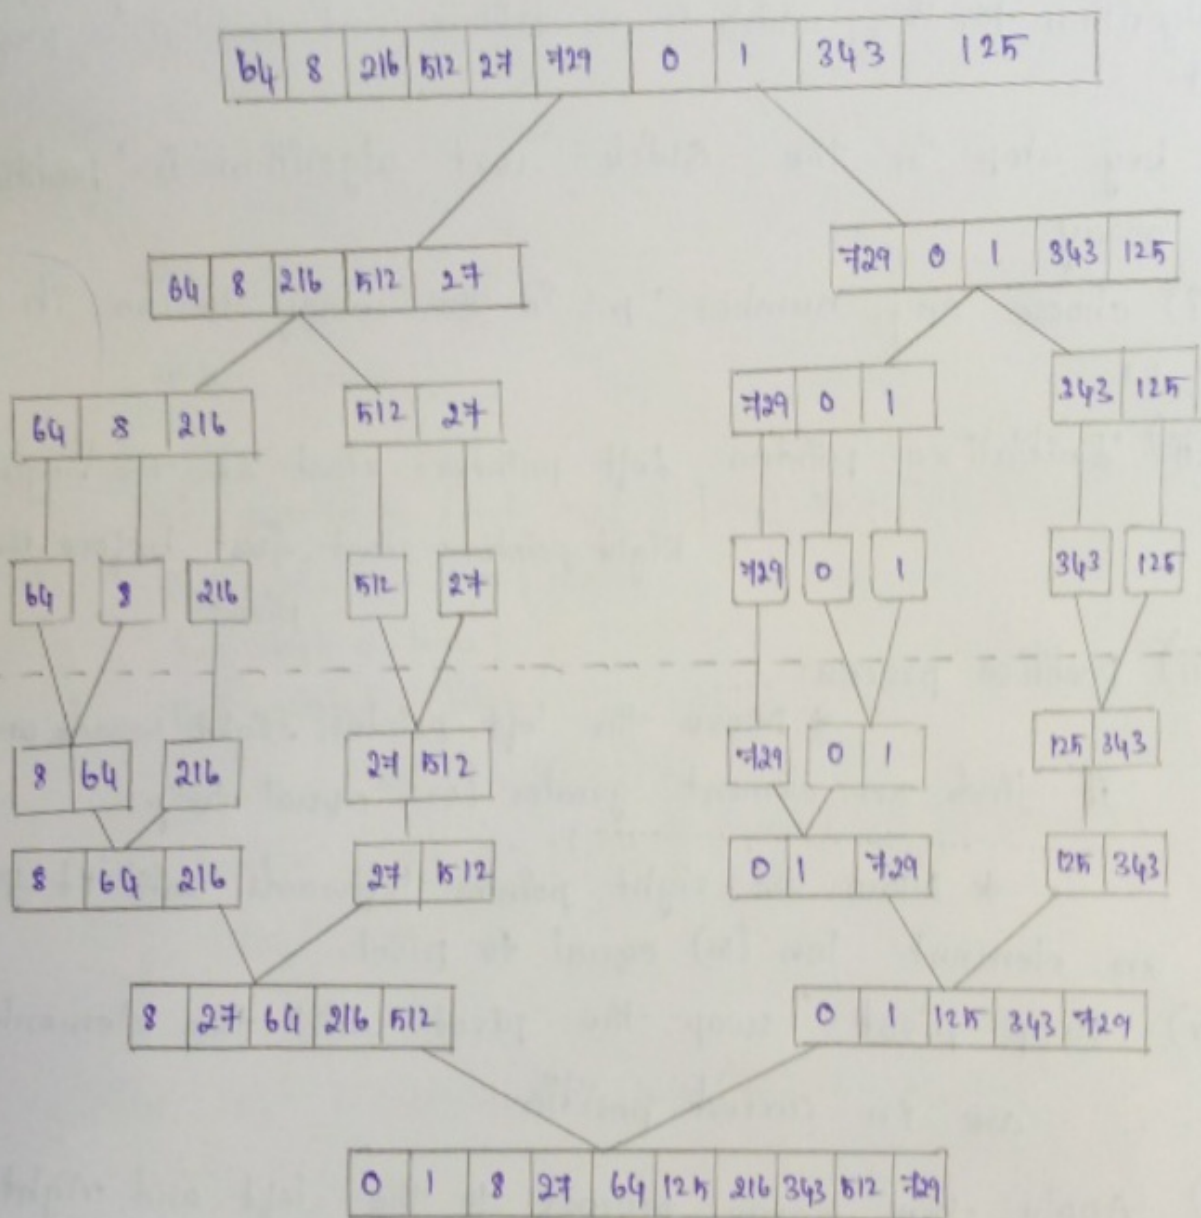 64 8 216 512 27 729 0 1 343 125
64 8 216 512 27 729 0 1 343 125
64 8 216 512 27 729 0 1 243 125
64 8 216 512 27 729 0 1 343 125
8 64 216 27 512 729 0 1 125 343
8 64 216 27 512 0 1 729 125 343
8 27 64 216 512 0 1 125 343 729
0 1 8 27 64 125 216 343 512 729